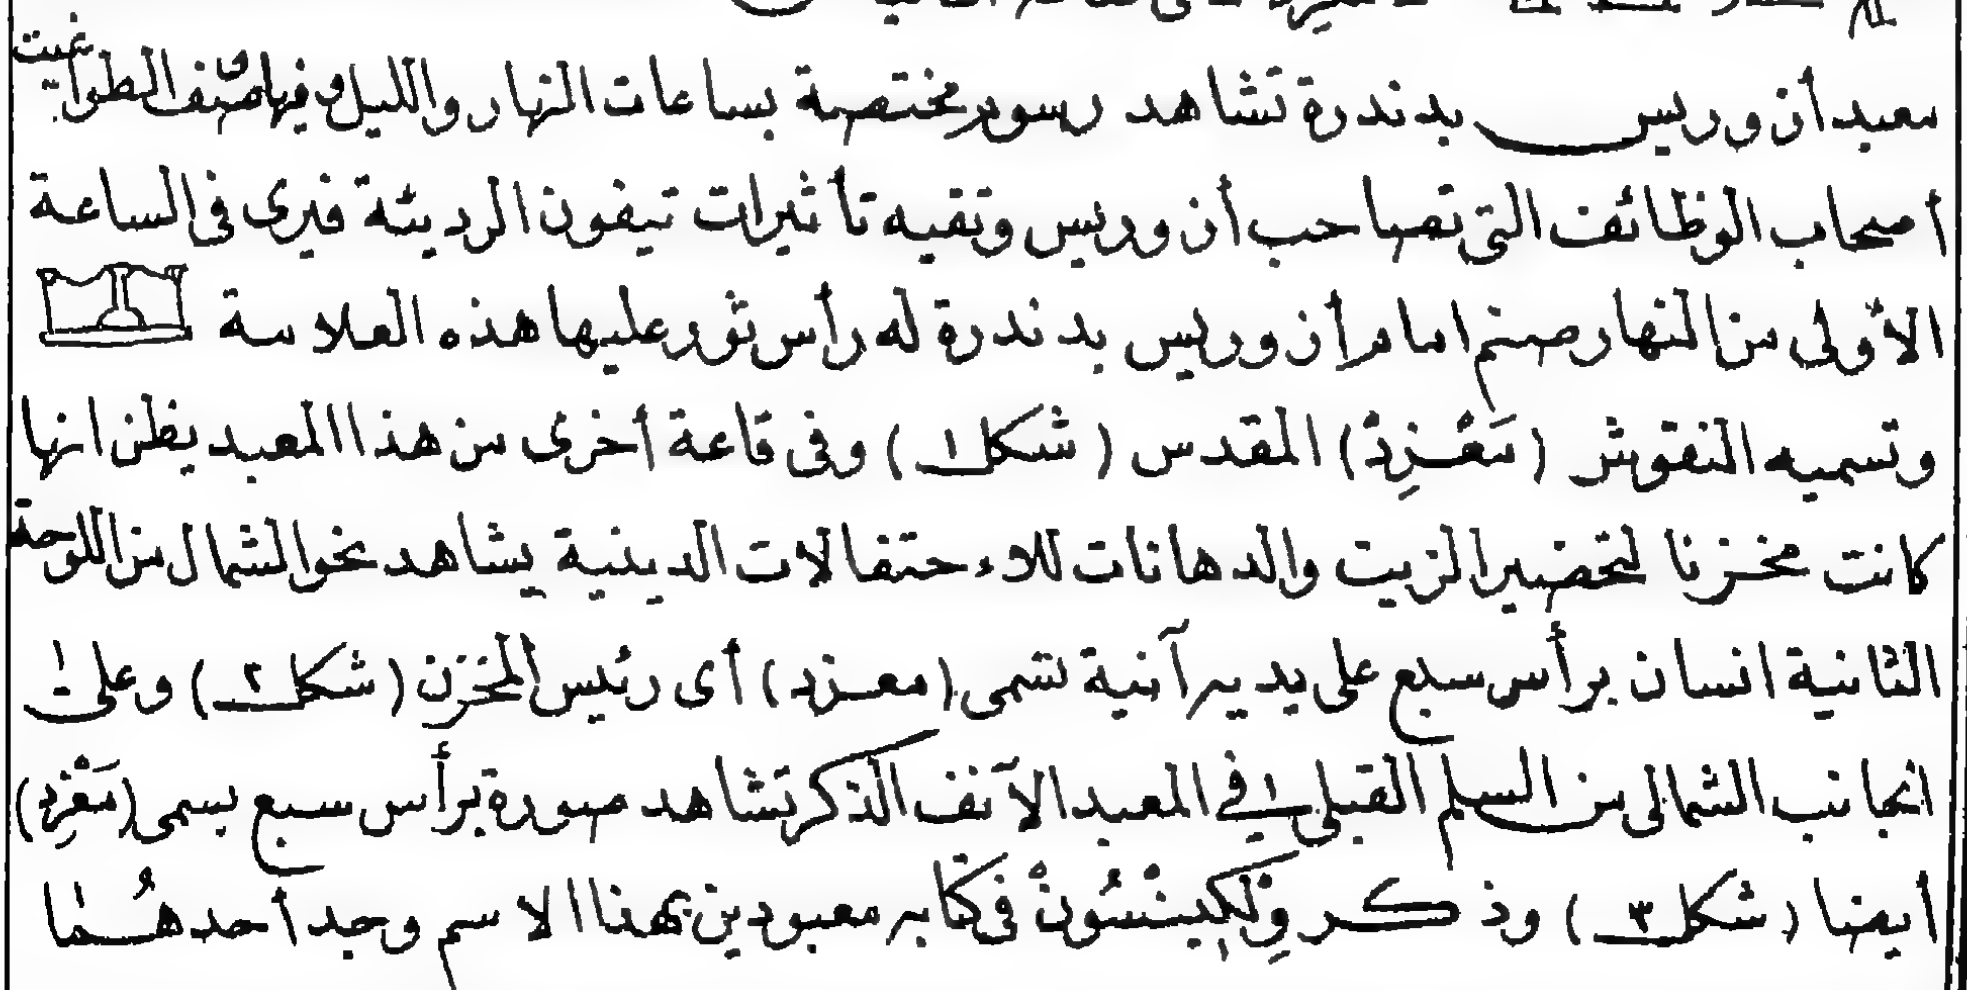 معبد أن وريس بدندرة تشاهد رسوم مختصة بساعات النهار والليل وفيها صنف الطوا غيت
أصحاب الوظائف التى تصاحب أن وريس وتقيه تأثيرات تيفون الرديئة فيرى فى الساعة
الأولى من النهار صنم امام أن وريس بدندرة له رأس ثور عليها هذه العلامة
وتسميه النقوش (مَعْزِدْ) المقدس (شكل ١) وفى قاعة أخرى من هذا المعبد يظن انها
كانت مخزنا لتحضير الزيت والدهانات للاءحتفالات الدينية يشاهد نحو الشمال من اللوحة
الثانية انسان برأس سبع على يديه آنية تسمى (معزد) أى رئيس المخزن (شكل ٢) وعلى
الجانب الشمالى من السلم القبلى فى المعبد الآنف الذكر تشاهد صورة برأس سبع يسمى (مَعْزِد)
أيضا (شكل ٣) وذكر وِلْكِينْسُونْ فى كتابه معبودين بهذا الاسم وجد أحدهُما